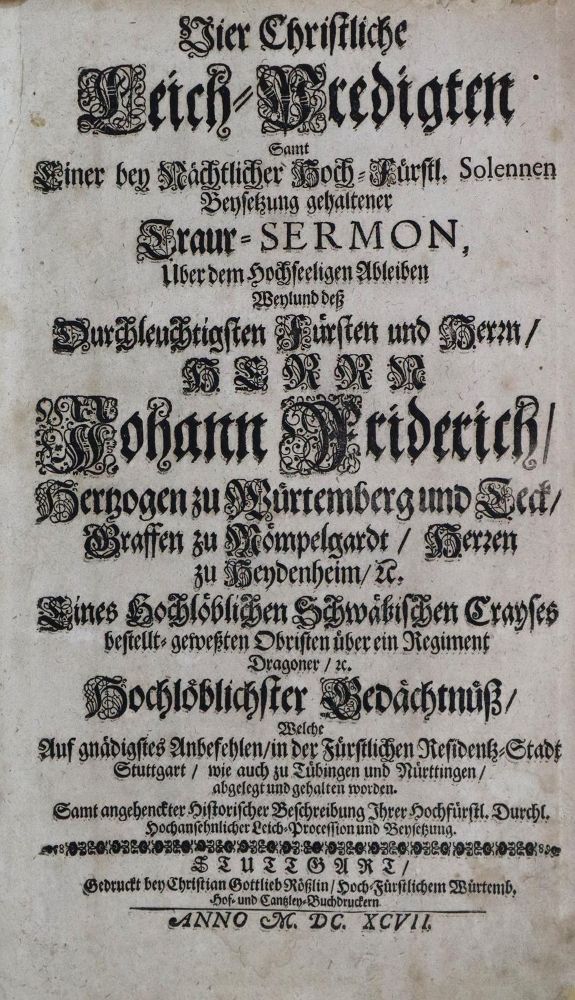 Vier Christliche
Leich-Predigten
Samt
Einer bey Nächtlicher Hoch-Fürstl. Solennen
Beysetzung gehaltener
Traur-SERMON,
Uber dem Hochseeligen Ableiben
Weylund deß
Durchleuchtigsten Fürsten und Herrn/
HERRN
Johann Friderich/
Hertzogen zu Würtemberg und Teck/
Graffen zu Mömpelgardt / Herren
zu Heydenheim/ ꝛc.
Eines Hochlöblichen Schwäbischen Crayses
bestellt-geweßten Obristen über ein Regiment
Dragoner / ꝛc.
Hochlöblichster Gedächtnüß/
Welche
Auf gnädigstes Anbefehlen/in der Fürstlichen Residentz-Stadt
Stuttgart / wie auch zu Tübingen und Nürttingen/
abgelegt und gehalten worden.
Samt angehenckter Historischer Beschreibung Ihrer Hochfürstl. Durchl.
Hochansehnlicher Leich-Procession und Beysetzung.
STUTTGART/
Gedruckt bey Christian Gottlieb Rößlin/ Hoch-Fürstlichem Würtemb.
Hof- und Cantzley-Buchdruckern
ANNO M. DC. XCVII.